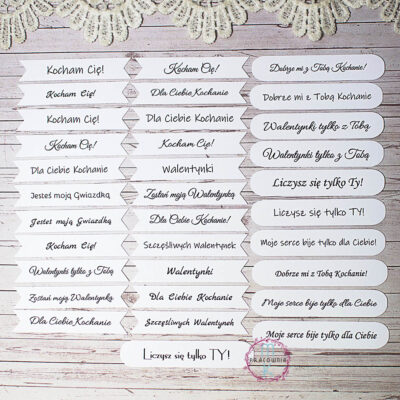 Kocham Cię!
Kocham Cię!
Kocham Cię!
Kocham Cię!
Dla Ciebie Kochanie
Jesteś moją Gwiazdką
Jesteś moją Gwiazdką
Kocham Cię!
Walentynki tylko z Tobą
Zostań moją Walentynką
Dla Ciebie Kochanie
Kocham Cię!
Dla Ciebie Kochanie
Dla Ciebie Kochanie
Kocham Cię!
Walentynki
Zostań moją Walentynką
Dla Ciebie Kochanie!
Szczęśliwych Walentynek
Walentynki
Dla Ciebie Kochanie
Szczęśliwych Walentynek
Dobrze mi z Tobą Kochanie!
Dobrze mi z Tobą Kochanie
Walentynki tylko z Tobą
Walentynki tylko z Tobą
Liczysz się tylko Ty!
Liczysz się tylko Ty!
Moje serce bije tylko dla Ciebie!
Dobrze mi z Tobą Kochanie!
Moje serce bije tylko dla Ciebie
Moje serce bije tylko dla Ciebie
Liczysz się tylko TY!
PRACOWNIA